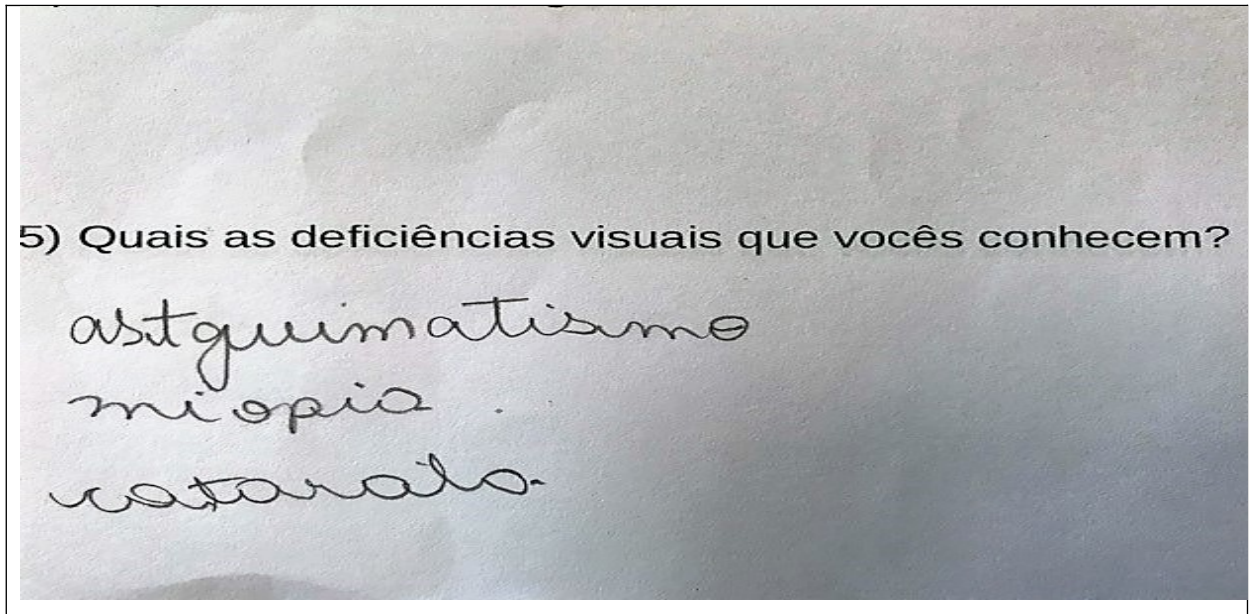 5) Quais as deficiências visuais que vocês conhecem?
astguimatismo
miopia.
catarata.